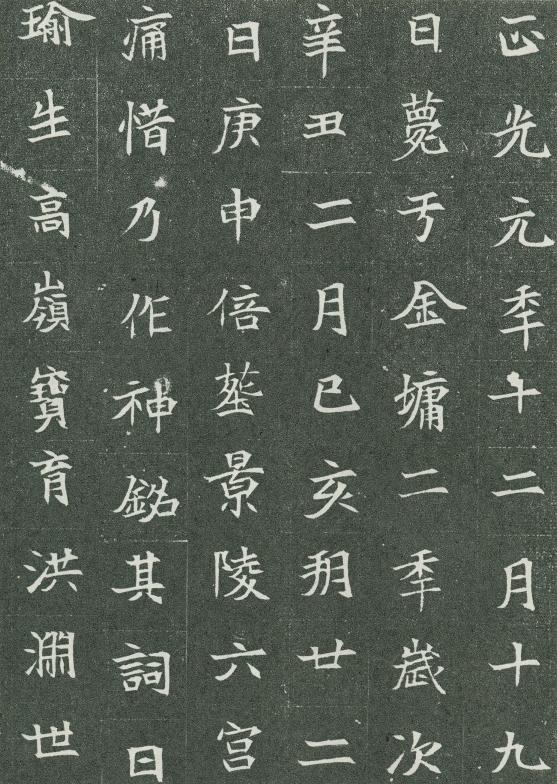 正光元秊十二月十九
日薨亏金墉二秊歲次
辛丑二月己亥朔廿二
日庚申倍葬景陵六宮
痛惜乃作神銘其詞曰
瑜生高嶺寶育洪淵世